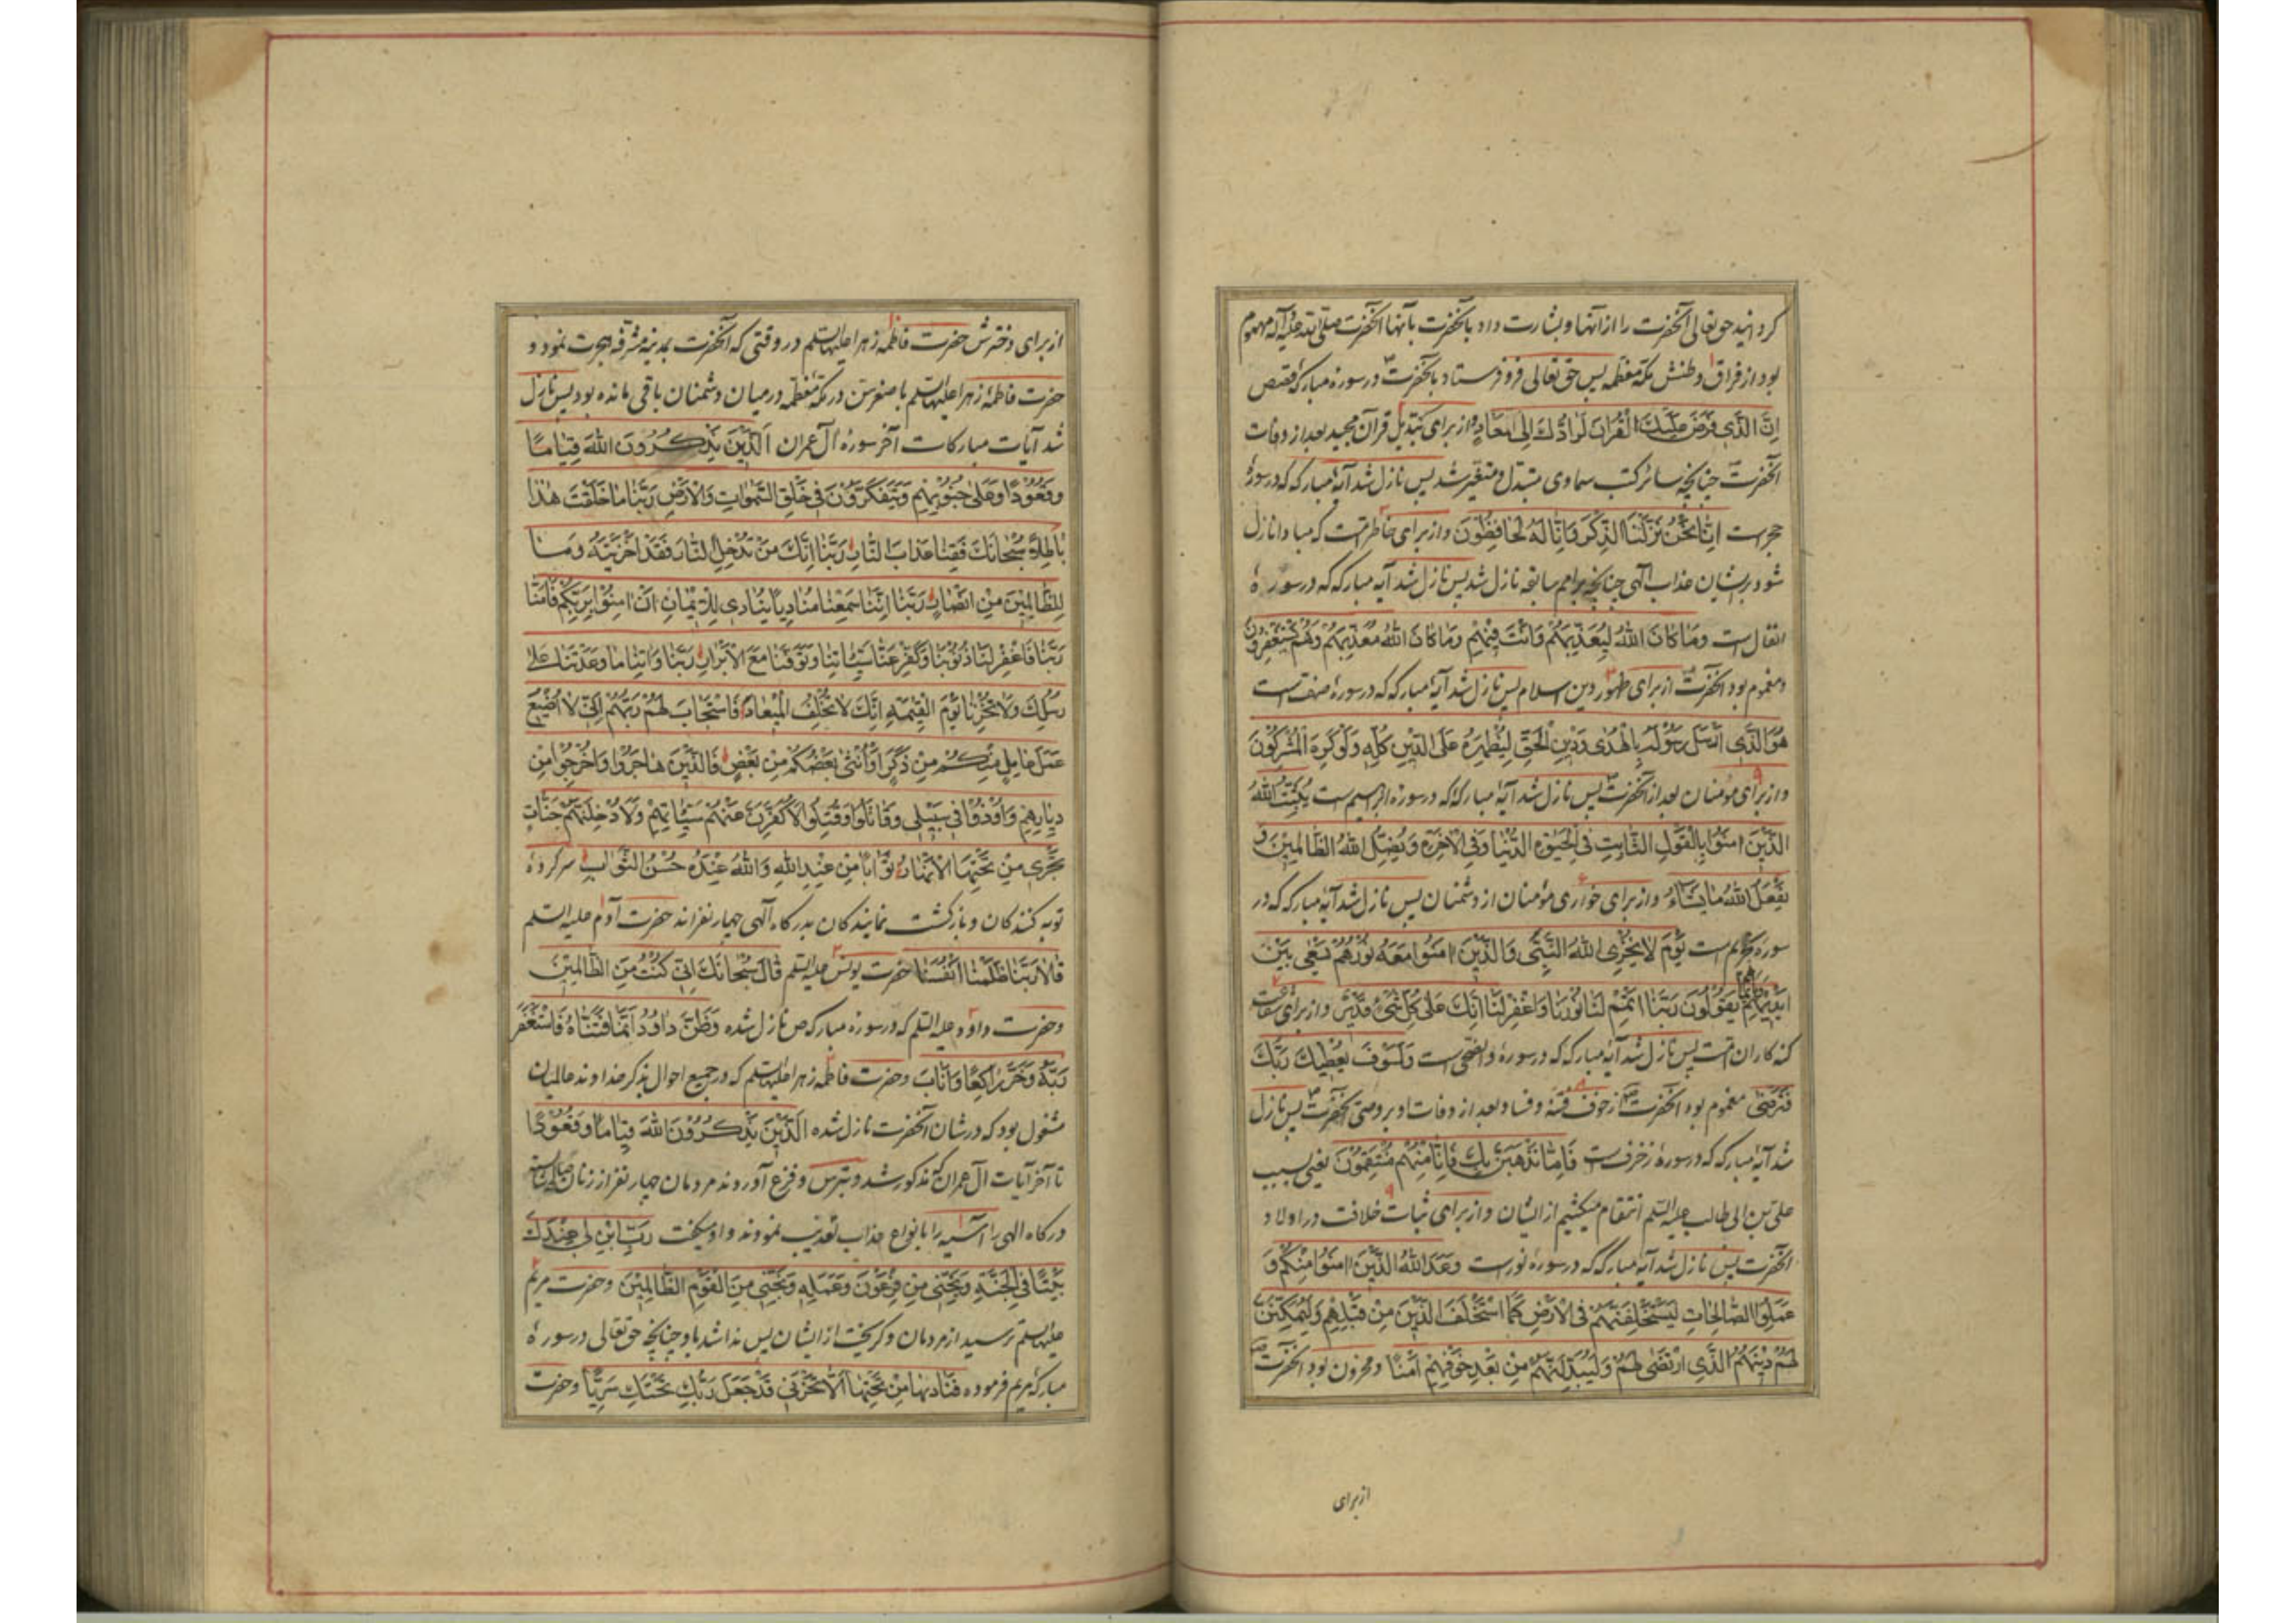 کردانید حق تعالی آنحضرت را از آنها و بشارت داد بآنحضرت بآنها آنحضرت صلی الله علیه و آله مهموم
بود از فراق وطنش مکه معظمه پس حق تعالی فرو فرستاد بآنحضرت در سورۀ مبارکۀ قصص
اِنَّ الَّذی فَرَضَ عَلَیْكَ الْقُرْانَ لَرادُّكَ اِلی مَعادٍ و از برای تبدیل قرآن مجید بعد از وفات
آنحضرت چنانچه سائر کتب سماوی متبدل و متغیر شد پس نازل شد آیۀ مبارکه که در سورۀ
حجر است اِنّا نَحْنُ نَزَّلْنَا الذِّکْرَ وَاِنّا لَهُ لَحافِظُونَ و از برای خاطر امت که مبادا نازل
شود بر ایشان عذاب آلهی چنانچه بر امم سابقه نازل شد پس نازل شد آیه مبارکه که در سورۀ
انفال است وَما کانَ اللهُ لِیُعَذِّبَهُمْ وَاَنْتَ فیهِمْ وَما کانَ اللهُ مُعَذِّبَهُمْ وَهُمْ یَسْتَغْفِرُونَ
و مغموم بود آنحضرت از برای ظهور دین اسلام پس نازل شد آیۀ مبارکه که در سورۀ صف است
هُوَ الَّذی اَرْسَلَ رَسُولَهُ بِالْهُدی وَدینِ الْحَقِّ لِیُظْهِرَهُ عَلَی الدّینِ کُلِّهِ وَلَوْ کَرِهَ الْمُشْرِکُونَ
و از برای مؤمنان بعد از آنحضرت پس نازل شد آیۀ مبارکه که در سورۀ ابراهیم است یُثَبِّتُ اللهُ
الَّذینَ امَنُوا بِالْقَوْلِ الثّابِتِ فِی الْحَیوةِ الدُّنْیا وَفِی الْاخِرَةِ وَیُضِلُّ اللهُ الظّالِمینَ وَ
یَفْعَلُ اللهُ ما یَشاءُ و از برای خواری مؤمنان از دشمنان پس نازل شد آیۀ مبارکه که در
سورۀ تحریم است یَوْمَ لا یُخْزِی اللهُ النَّبِیَّ وَالَّذینَ امَنُوا مَعَهُ نُورُهُمْ یَسْعی بَیْنَ
اَیْدیهِمْ وَبِاَیْمانِهِمْ یَقُولُونَ رَبَّنا اَتْمِمْ لَنا نُورَنا وَاغْفِرْ لَنا اِنَّكَ عَلی کُلِّ شَیْءٍ قَدیرٌ و از برای شفاعت
کنه کاران امت پس نازل شد آیۀ مبارکه که در سورۀ والضحی است وَلَسَوْفَ یُعْطیكَ رَبُّكَ
فَتَرْضی مغموم بود آنحضرت از خوف فتنه و فساد بعد از وفات او بر وصی آنحضرت پس نازل
شد آیۀ مبارکه که در سورۀ زخرف است فَاِمّا نَذْهَبَنَّ بِكَ فَاِنّا مِنْهُمْ مُنْتَقِمُونَ یعنی بسبب
علی بن ابی طالب علیه السلام انتقام میکشیم از ایشان و از برای ثبات خلافت در اولاد
آنحضرت پس نازل شد آیه مبارکه که در سورۀ نور است وَعَدَ اللهُ الَّذینَ امَنُوا مِنْکُمْ وَ
عَمِلُوا الصّالِحاتِ لَیَسْتَخْلِفَنَّهُمْ فِی الْاَرْضِ کَمَا اسْتَخْلَفَ الَّذینَ مِنْ قَبْلِهِمْ وَلَیُمَکِّنَنَّ
لَهُمْ دینَهُمُ الَّذِی ارْتَضی لَهُمْ وَلَیُبَدِّلَنَّهُمْ مِنْ بَعْدِ خَوْفِهِمْ اَمْنًا و محزون بود آنحضرت
از برای
از برای دخترش حضرت فاطمه زهرا علیها السلام در وقتی که آنحضرت بمدینه مشرفه هجرت نمود و
حضرت فاطمۀ زهرا علیها السلام با صغر سن در مکۀ معظمه در میان دشمنان باقی مانده بود پس نازل
شد آیات مبارکات آخر سورۀ آل عمران اَلَّذینَ یَذْکُرُونَ اللهَ قِیامًا
وَقُعُودًا وَعَلی جُنُوبِهِمْ وَیَتَفَکَّرُونَ فی خَلْقِ السَّمواتِ وَالْاَرْضِ رَبَّنا ما خَلَقْتَ هذا
باطِلًا سُبْحانَكَ فَقِنا عَذابَ النّارِ رَبَّنا اِنَّكَ مَنْ تُدْخِلِ النّارَ فَقَدْ اَخْزَیْتَهُ وَما
لِلظّالِمینَ مِنْ اَنْصارٍ رَبَّنا اِنَّنا سَمِعْنا مُنادِیًا یُنادی لِلْایمانِ اَنْ امِنُوا بِرَبِّکُمْ فَامَنّا
رَبَّنا فَاغْفِرْ لَنا ذُنُوبَنا وَکَفِّرْ عَنّا سَیِّئاتِنا وَتَوَفَّنا مَعَ الْاَبْرارِ رَبَّنا وَاتِنا ما وَعَدْتَنا عَلی
رُسُلِكَ وَلا تُخْزِنا یَوْمَ الْقِیمَةِ اِنَّكَ لا تُخْلِفُ الْمیعادَ فَاسْتَجابَ لَهُمْ رَبُّهُمْ اَنّی لا اُضیعُ
عَمَلَ عامِلٍ مِنْکُمْ مِنْ ذَکَرٍ اَوْ اُنْثی بَعْضُکُمْ مِنْ بَعْضٍ فَالَّذینَ هاجَرُوا وَاُخْرِجُوا مِنْ
دِیارِهِمْ وَاُوذُوا فی سَبیلی وَقاتَلُوا وَقُتِلُوا لَاُکَفِّرَنَّ عَنْهُمْ سَیِّئاتِهِمْ وَلَاُدْخِلَنَّهُمْ جَنّاتٍ
تَجْری مِنْ تَحْتِهَا الْاَنْهارُ ثَوابًا مِنْ عِنْدِ اللهِ وَاللهُ عِنْدَهُ حُسْنُ الثَّوابِ سر کردۀ
توبه کنندکان و بازکشت نمایندکان بدرکاه آلهی چهار نفرند حضرت آدم علیه السلم
قالا رَبَّنا ظَلَمْنا اَنْفُسَنا حضرت یونس علیه السلم قالَ سُبْحانَكَ اِنّی کُنْتُ مِنَ الظّالِمینَ
و حضرت داود علیه السلم که در سورۀ مبارکه ص نازل شده وَظَنَّ داوُدُ اَنَّما فَتَنّاهُ فَاسْتَغْفَرَ
رَبَّهُ وَخَرَّ راکِعًا وَاَنابَ و حضرت فاطمه زهرا علیها السلام که در جمیع احوال بذکر خداوند عالمیان
مشغول بود که در شان آنحضرت نازل شده اَلَّذینَ یَذْکُرُونَ اللهَ قِیامًا وَقُعُودًا
تا آخر آیات آل عمران که مذکور شد و بترس و فزع آوردند مردمان چهار نفر از زنان
درکاه الهی را آسیه را بانواع عذاب تعذیب نمودند و او میکفت رَبِّ ابْنِ لی عِنْدَكَ
بَیْتًا فِی الْجَنَّةِ وَنَجِّنی مِنْ فِرْعَوْنَ وَعَمَلِهِ وَنَجِّنی مِنَ الْقَوْمِ الظّالِمینَ و حضرت مریم
علیها السلم ترسید از مردمان و کریخت از ایشان پس ندا شد باو چنانچه حق تعالی در سورۀ
مبارکۀ مریم فرموده فَنادیها مِنْ تَحْتِها اَلّا تَحْزَنی قَدْ جَعَلَ رَبُّكِ تَحْتَكِ سَرِیًّا و حضرت